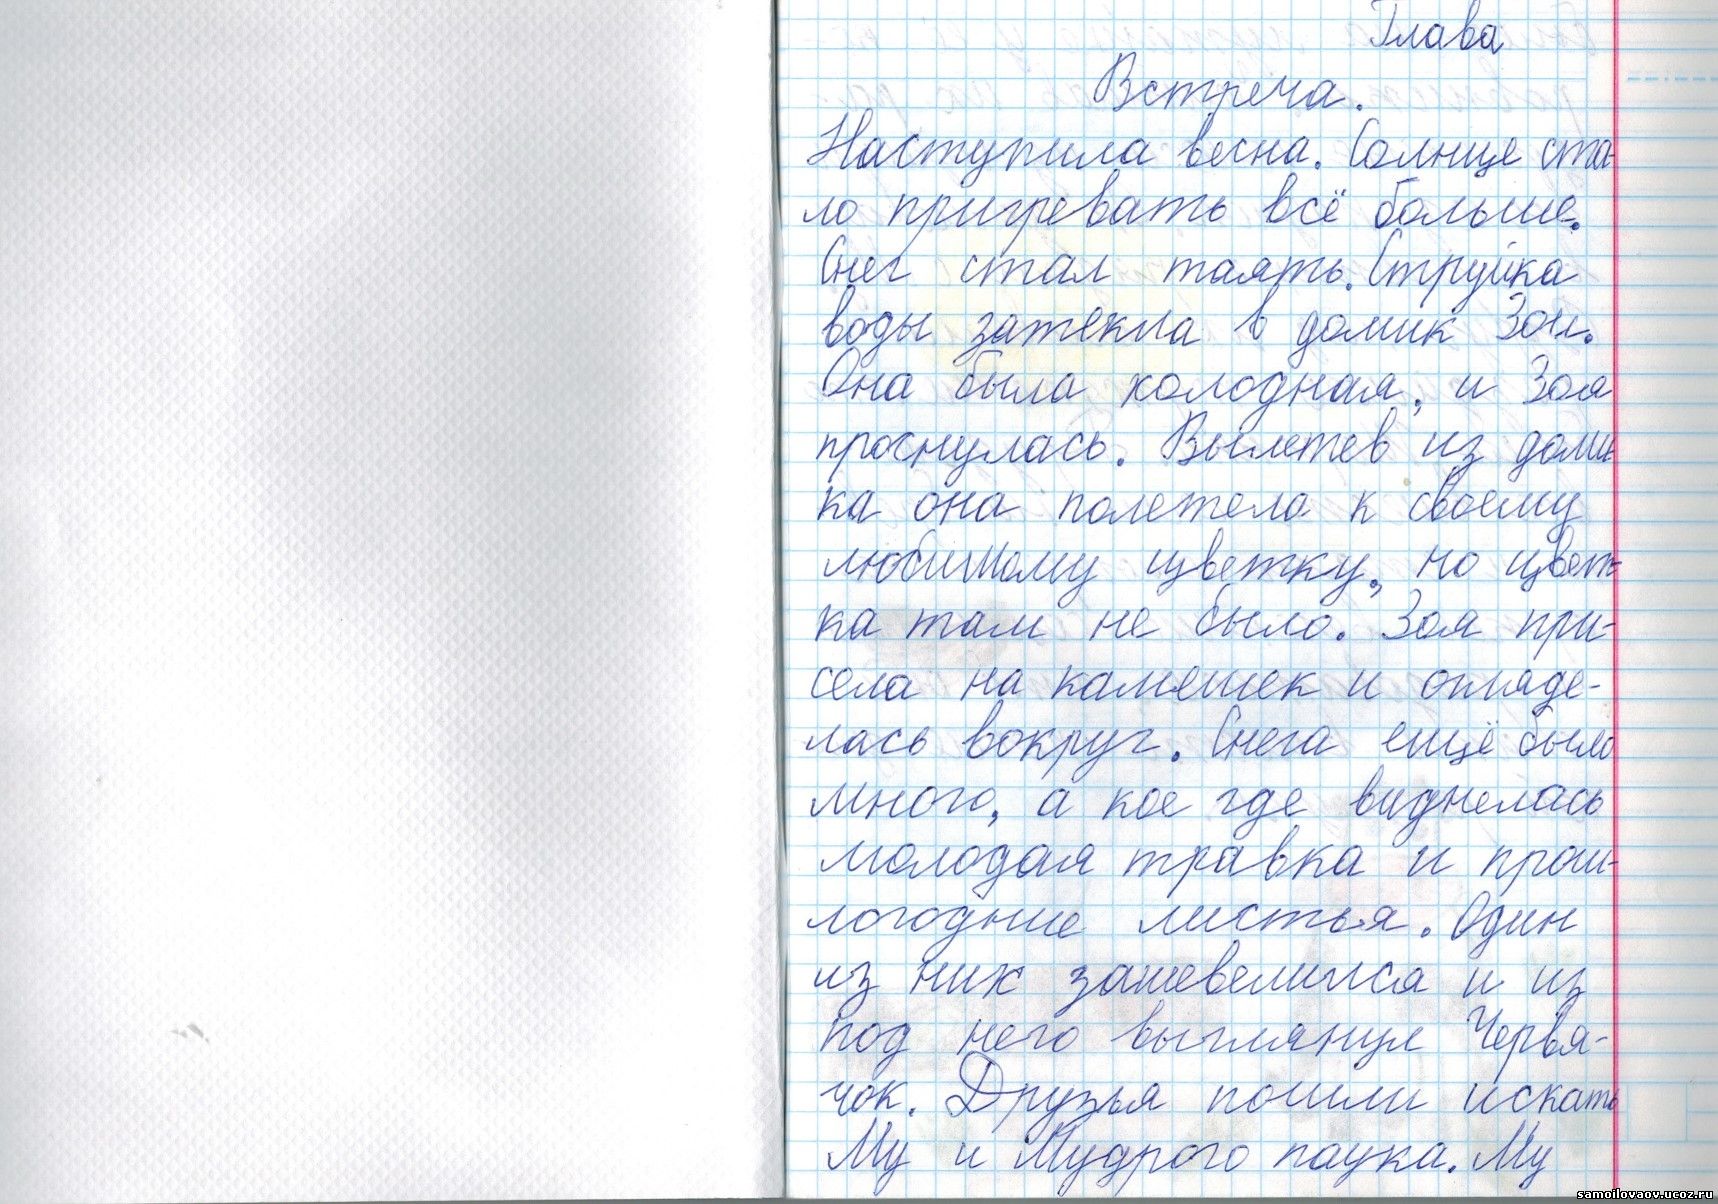 Глава
Встреча.
Наступила весна. Солнце ста-
ло пригревать всё больше.
Снег стал таять. Струйка
воды затекла в домик Зои.
Она была холодная, и Зоя
проснулась. Вылетев из доми-
ка она полетела к своему
любимому цветку, но цвет-
ка там не было. Зоя при-
села на камешек и огляде-
лась вокруг. Снега ещё было
много, а кое где виднелась
молодая травка и прош-
логодние листья. Один
из них зашевелился и из
под него выглянул Червя-
чок. Друзья пошли искать
Му и Мудрого паука. Му
samoilovaov.ucoz.ru